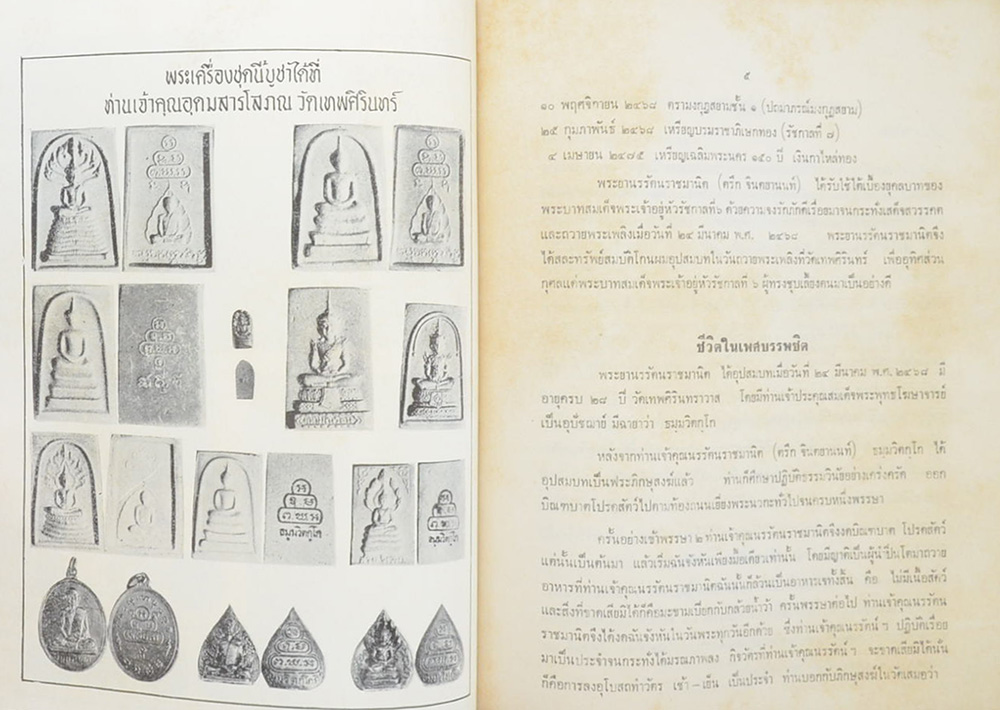 พระเครื่องชุดนี้บูชาได้ที่
ท่านเจ้าคุณอุดมสารโสภณ วัดเทพศิรินทร์
ธมฺมวิตกฺโก
๕
๑๐ พฤศจิกายน ๒๔๖๘ ตรามงกุฎสยามชั้น ๑ (ปถมาภรณ์มงกุฎสยาม)
๒๕ กุมภาพันธ์ ๒๔๖๘ เหรียญบรมราชาภิเษกทอง (รัชกาลที่ ๗)
๔ เมษายน ๒๔๗๕ เหรียญเฉลิมพระนคร ๑๕๐ ปี เงินกาไหล่ทอง
พระยานรรัตนราชมานิต (ตรึก จินตยานนท์) ได้รับใช้ใต้เบื้องยุคลบาทของ
พระบาทสมเด็จพระเจ้าอยู่หัวรัชกาลที่๖ ด้วยความจงรักภักดีเรื่อยมาจนกระทั่งเสด็จสวรรคต
และถวายพระเพลิงเมื่อวันที่ ๒๔ มีนาคม พ.ศ. ๒๔๖๘ พระยานรรัตนราชมานิตจึง
ได้สละทรัพย์สมบัติโกนผมอุปสมบทในวันถวายพระเพลิงที่วัดเทพศิรินทร์ เพื่ออุทิศส่วน
กุศลแด่พระบาทสมเด็จพระเจ้าอยู่หัวรัชกาลที่ ๖ ผู้ทรงชุบเลี้ยงตนมาเป็นอย่างดี
ชีวิตในเพศบรรพชิต
พระยานรรัตนราชมานิต ได้อุปสมบทเมื่อวันที่ ๒๔ มีนาคม พ.ศ. ๒๔๖๘ มี
อายุครบ ๒๘ ปี วัดเทพศิรินทราวาส โดยมีท่านเจ้าประคุณสมเด็จพระพุทธโฆษาจารย์
เป็นอุปัชฌาย์ มีฉายาว่า ธมฺมวิตกฺโก
หลังจากท่านเจ้าคุณนรรัตนราชมานิต (ตรึก จินตยานนท์) ธมฺมวิตกฺโก ได้
อุปสมบทเป็นพระภิกษุสงฆ์แล้ว ท่านก็ศึกษาปฏิบัติธรรมวินัยอย่างเคร่งครัด ออก
บิณฑบาตโปรดสัตว์ไปตามท้องถนนเยี่ยงพระนวกะทั่วไปจนครบหนึ่งพรรษา
ครั้นย่างเข้าพรรษา ๒ ท่านเจ้าคุณนรรัตนราชมานิตจึงงดบิณฑบาต โปรดสัตว์
แต่นั้นเป็นต้นมา แล้วเริ่มฉันจังหันเพียงมื้อเดียวเท่านั้น โดยมีญาติเป็นผู้นำปิ่นโตมาถวาย
อาหารที่ท่านเจ้าคุณนรรัตนราชมานิตฉันนั้นก็ล้วนเป็นอาหารเจทั้งสิ้น คือ ไม่มีเนื้อสัตว์
และสิ่งที่ขาดเสียมิได้ก็คือมะขามเปียกกับกล้วยน้ำว้า ครั้นพรรษาต่อไป ท่านเจ้าคุณนรรัตน
ราชมานิตจึงได้งดฉันจังหันในวันพระทุกวันอีกด้วย ซึ่งท่านเจ้าคุณนรรัตน์ ฯ ปฏิบัติเรื่อย
มาเป็นประจำจนกระทั่งได้มรณภาพลง กิจวัตรที่ท่านเจ้าคุณนรรัตน์ ฯ จะขาดเสียมิได้นั้น
ก็คือการลงอุโบสถทำวัตร เช้า – เย็น เป็นประจำ ท่านบอกกับภิกษุสงฆ์ในวัดเสมอว่า